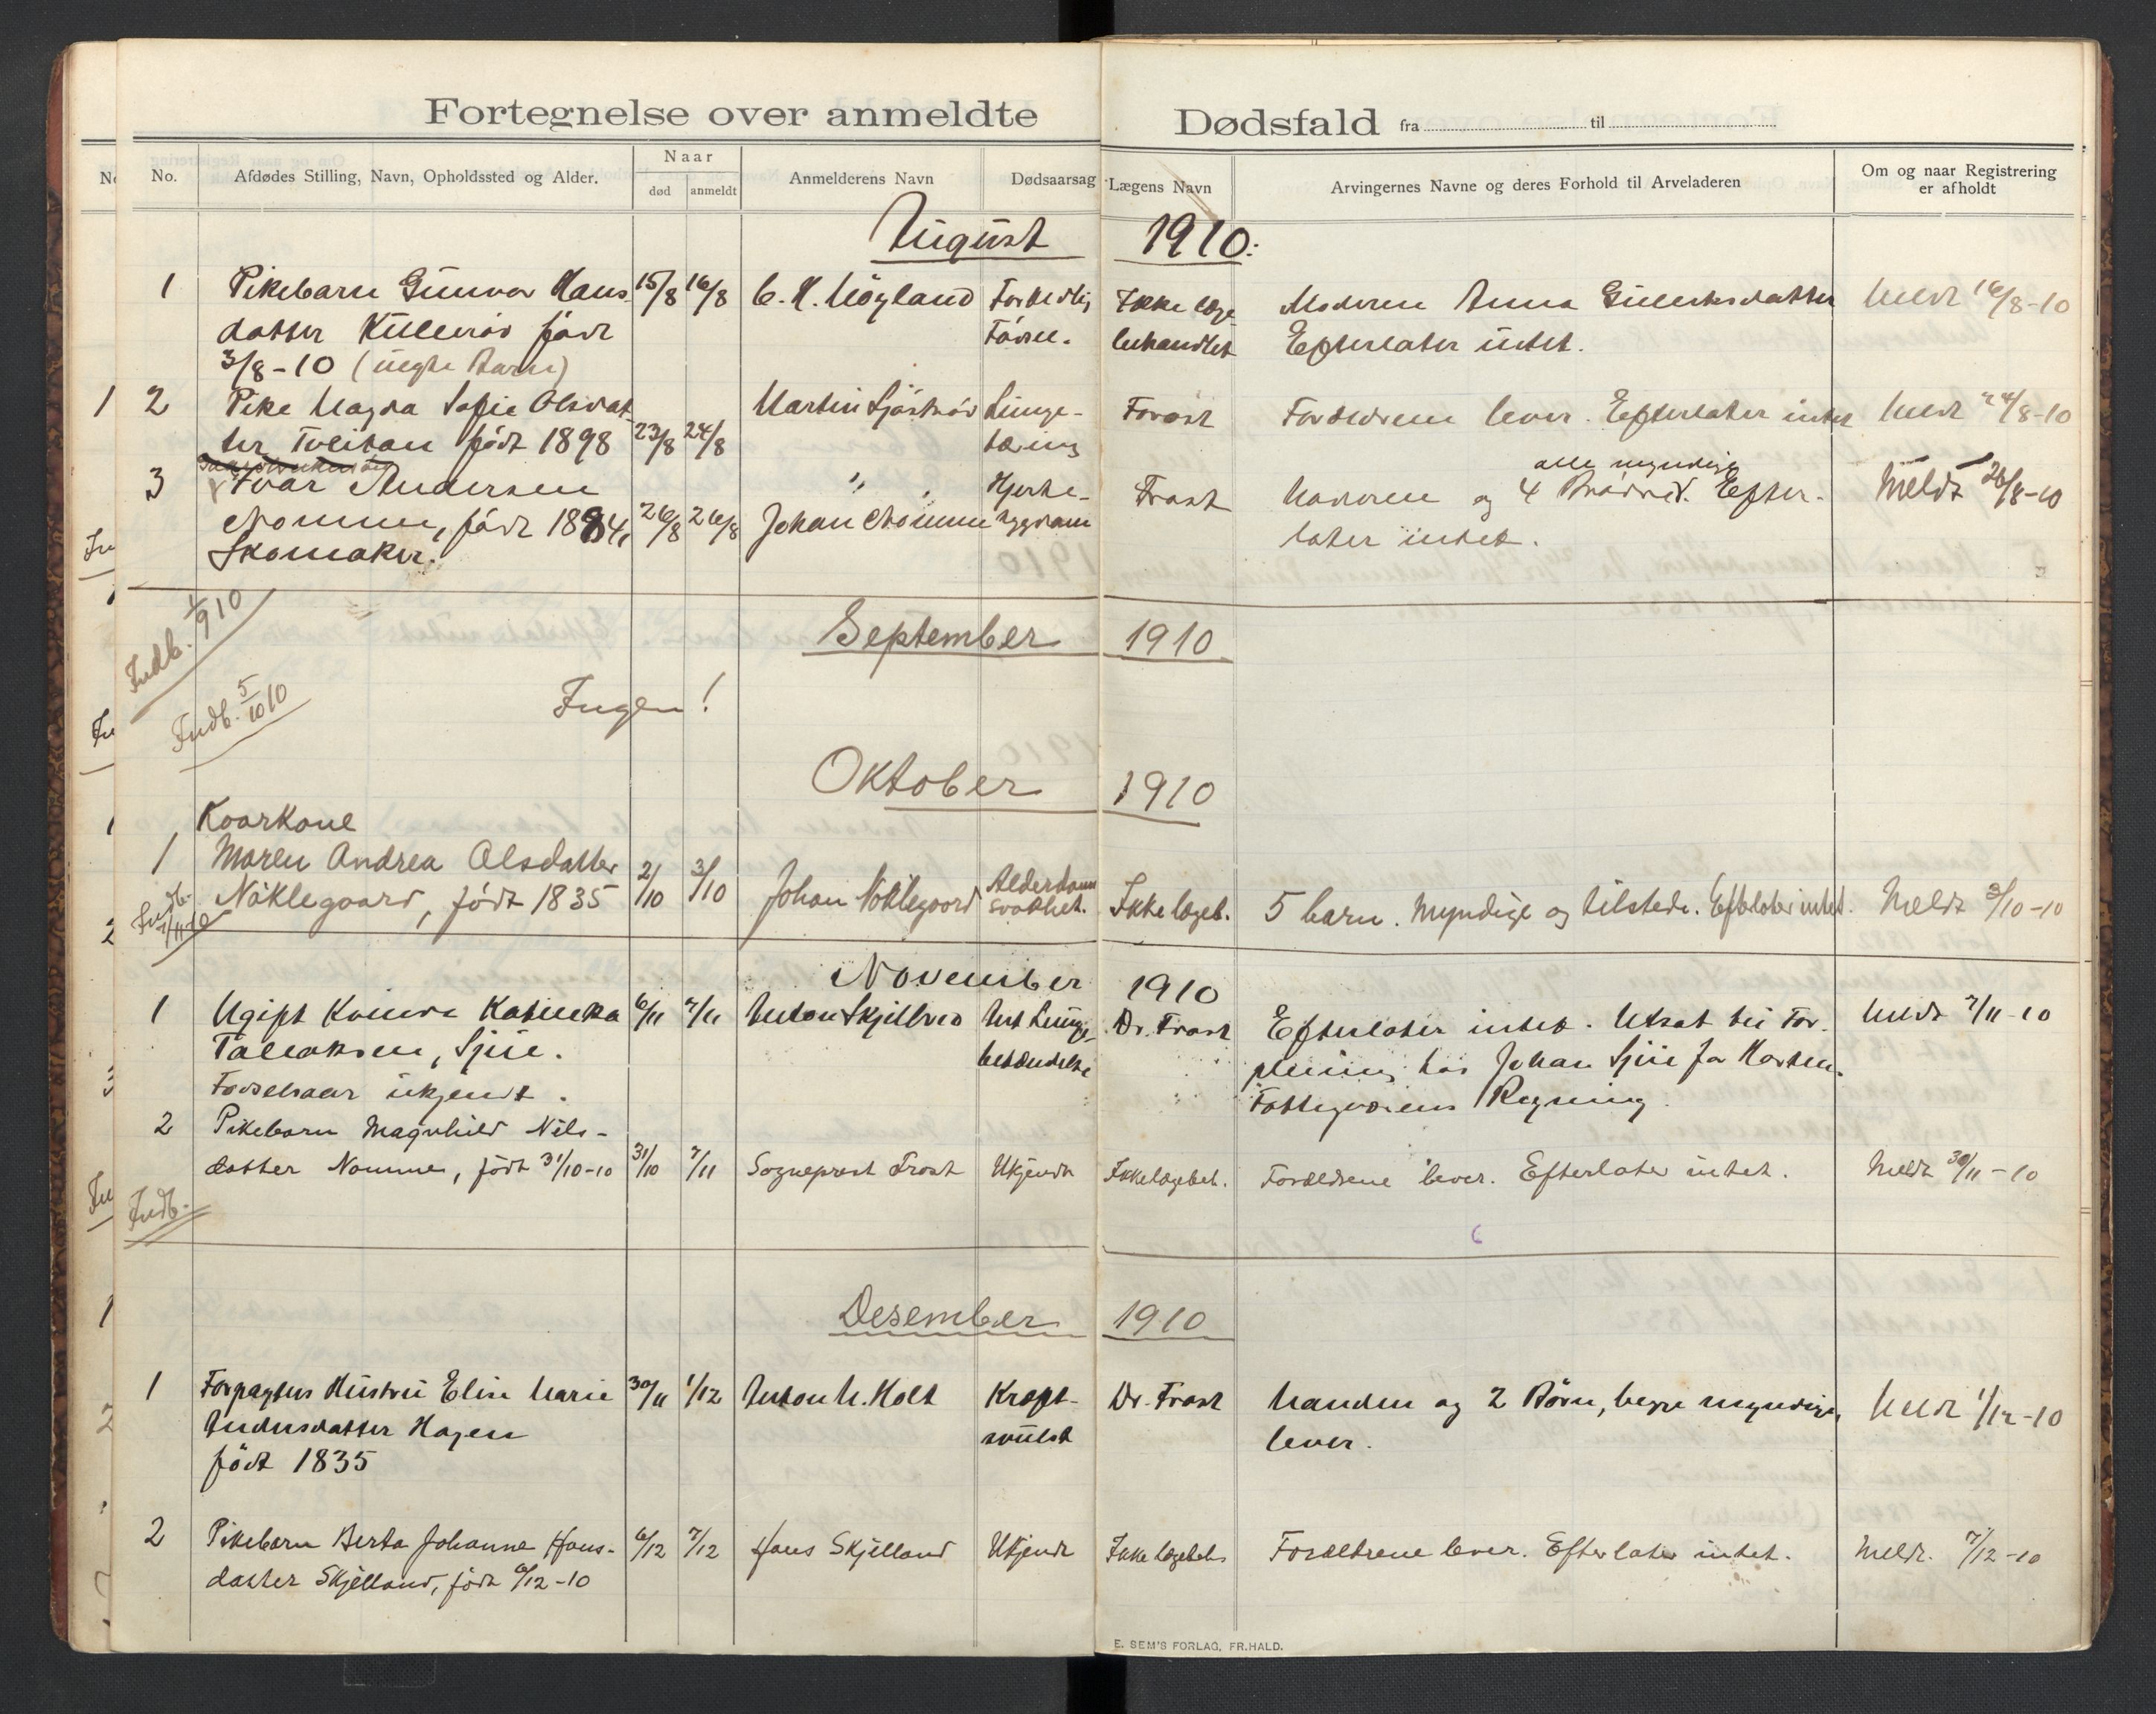 Fortegnelse over anmeldte Dødsfald fra til
No.
Afdødes Stilling, Navn, Opholdssted og Alder.
Naar
død
anmeldt
Anmelderens Navn
Dødsaarsag
Lægens Navn
Arvingernes Navne og deres Forhold til Arveladeren
Om og naar Registrering
er afholdt
August 1910:
1 Pikebarn Gunvor Hans- 15/8 16/8 Forkertlig Ikke læge- Moderen Anna Meldt 16/8-10
datter født Fødsel. behandlet Efterlater intet.
3/8-10 (uegte Barn)
2 Pike Magda Sofie Olsdat- Martin Lunge- Frost Forældrene lever. Efterlater intet Meldt 24/8-10
ter Tveitan født 1898 23/8 24/8 tæring
alle myndige
3 Ivar Andersen " " Hjerte- Frost og 4 Efter- Meldt 26/8-10
Nomme, født 1884, 26/8 26/8 Johan Nomme sygdom later intet.
Skomaker.
Indb. 1/9 10
September 1910
Indb. 5/10 10
Ingen!
Oktober 1910
Kaarkone
1 Maren Andrea Olsdatter 2/10 3/10 Johan Nøklegaard Alderdoms Ikke lægeb. 5 barn. Myndige og tilstede. Efterlater intet. Meldt 3/10-10
Nøklegaard, født 1835 svakhet.
November 1910
1 Ugift Katinka 6/11 7/11 Anton Skjelbred Dr. Frost Efterlater intet. Utsat til For- Meldt 7/11-10
Tallaksen, betændelse pleining hos Johan
Fødselsaar ukjendt. Fattigvæsens Regning.
2 Pikebarn Magnhild Nils-
datter Nomme, født 31/10-10 31/10 7/11 Sogneprest Frost Ukjendt Ikke lægebeh. Forældrene lever. Efterlater intet. Meldt 30/11-10
Indb.
6
Desember 1910
1 Forpagters Hustru Elise Marie 30/11 1/12 Anton M. Holt Kræft- Dr. Frost Manden og 2 Børn, begge myndige, Meldt 1/12-10
Andersdatter Hagen svulst lever.
født 1835
2 Pikebarn Berta Johanne Hans- 6/12 7/12 Hans Skjelland Ukjendt Ikke lægebeh. Forældrene lever. Efterlater intet. Meldt. 7/12-10
datter Skjelland, født 6/12-10
E. SEM'S FORLAG, FR.HALD.